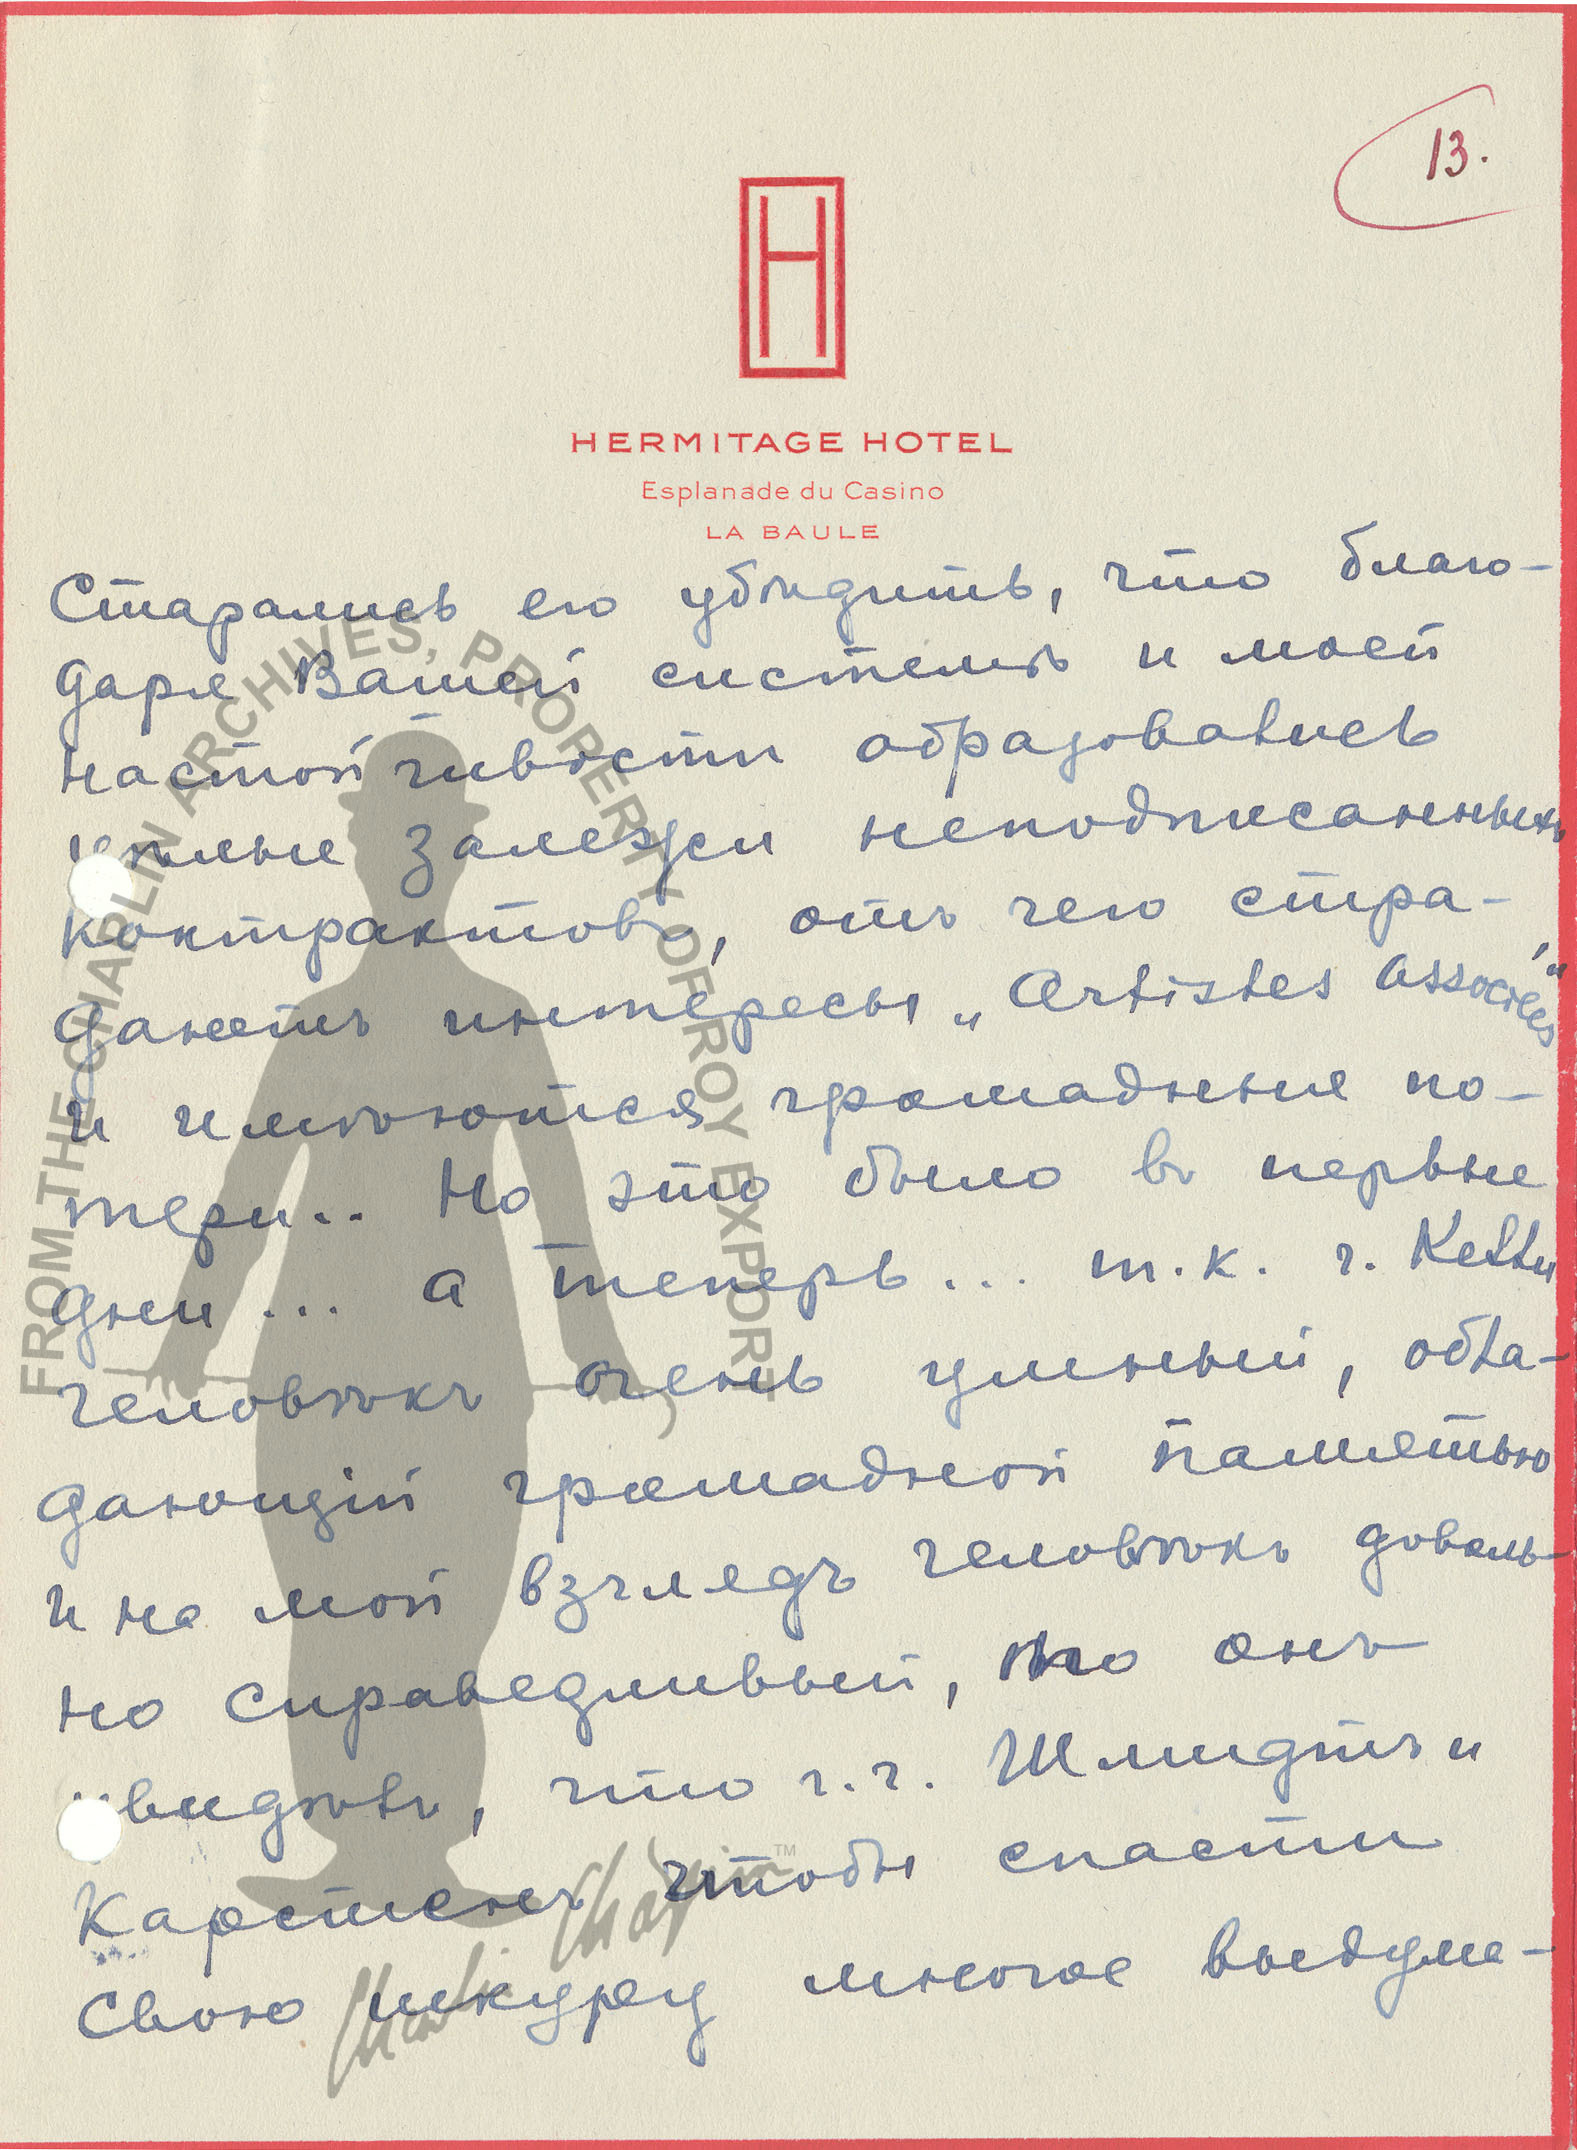 13.
H
HERMITAGE HOTEL
Esplanade du Casino
LA BAULE
старались его убѣдить, что благо-
даря Вашей системѣ и моей
настойчивости образовались
цѣлые залежи неподписанныхъ
контрактовъ, отъ чего стра-
даютъ интересы „Artistes Associés"
и имѣются громадныя по-
тери.. Но это было въ первые
дни... а теперь... т.к. г. Kelly
человѣкъ очень умный, обла-
дающій громадной памятью
и на мой взглядъ человѣкъ доволь-
но справедливый, то онъ
увидѣлъ, что г.г. Шмидтъ и
Карстенъ чтобы спасти
свою шкуру многое выдума-
FROM THE CHAPLIN ARCHIVES, PROPERTY OF ROY EXPORT
Charlie Chaplin TM